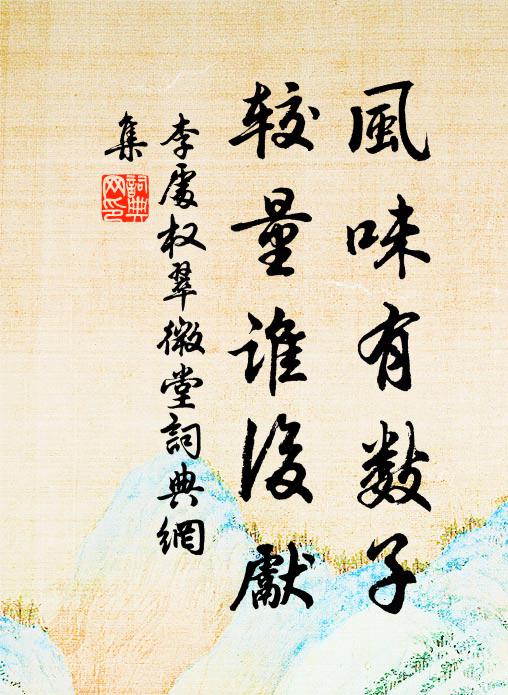 風味有数子
較量誰後獻
李處权翠微堂詞典網
集
詞典
网印